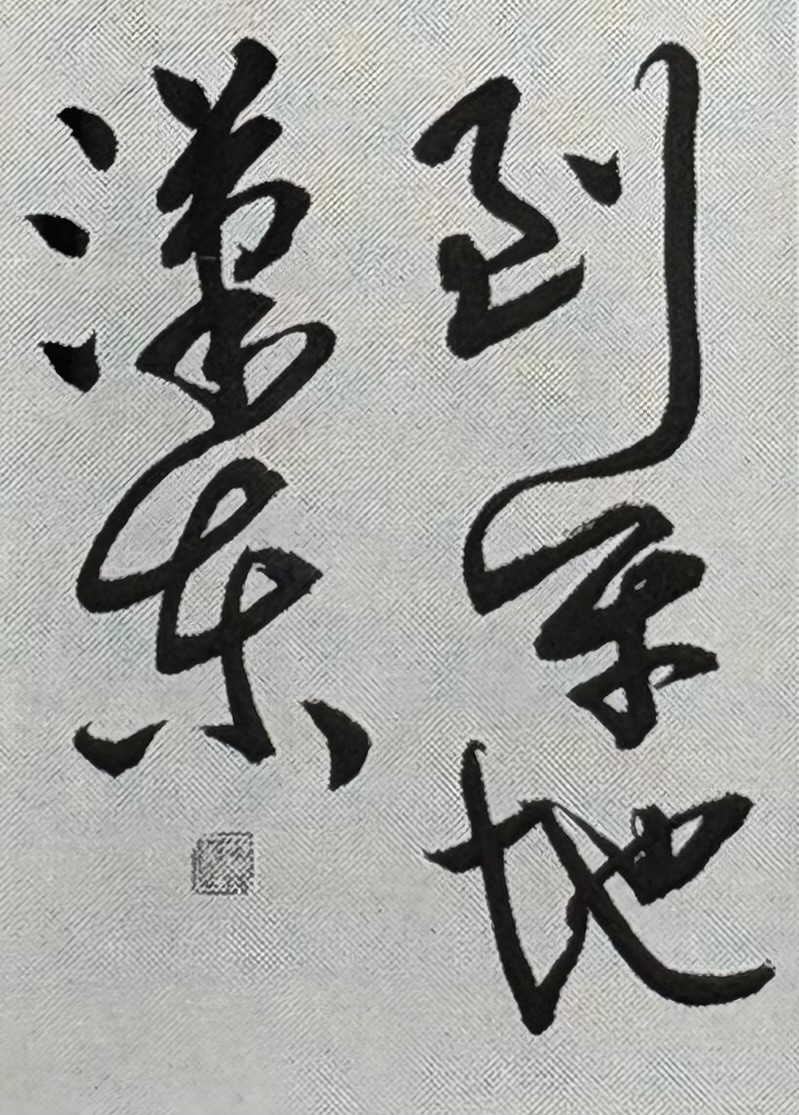 到平地
漢東